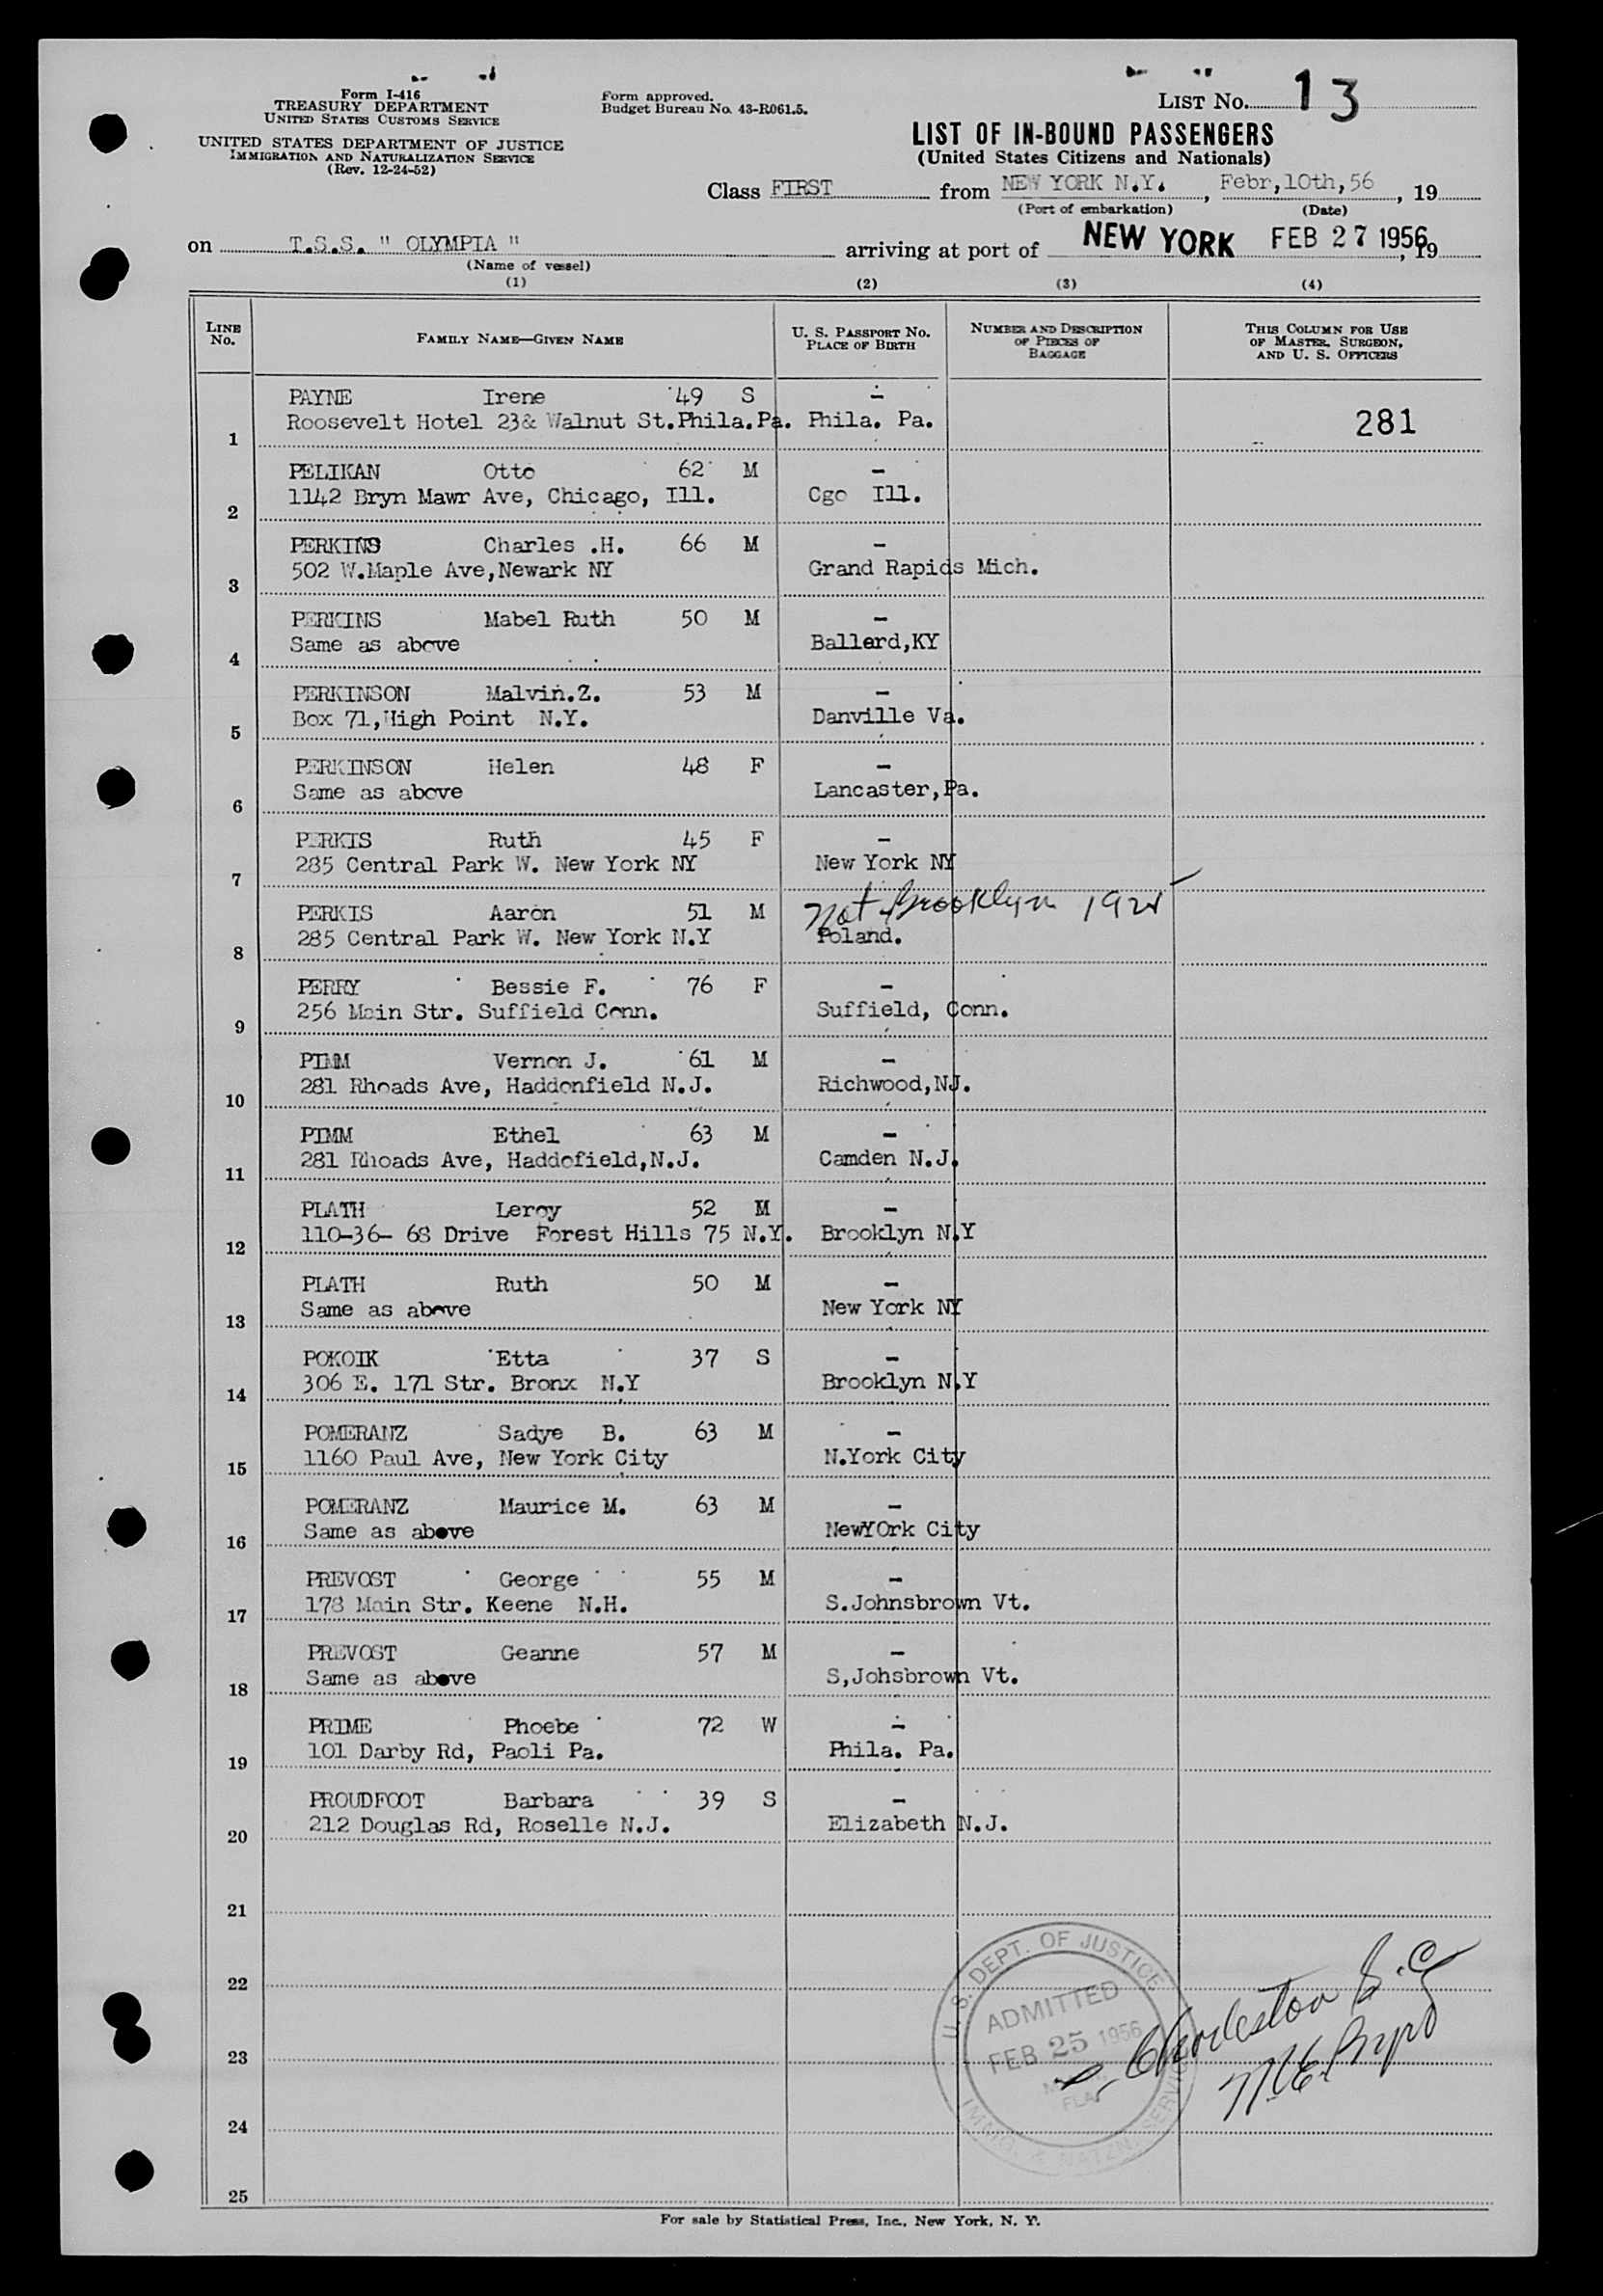 Form I-416
TREASURY DEPARTMENT
UNITED STATES CUSTOMS SERVICE
UNITED STATES DEPARTMENT OF JUSTICE
IMMIGRATION AND NATURALIZATION SERVICE
(Rev. 12-24-52)
Form approved.
Budget Bureau No. 43-R061.5.
LIST No. 13
LIST OF IN-BOUND PASSENGERS
(United States Citizens and Nationals)
Class FIRST from NEW YORK N.Y., Febr,10th,56, 19
(Port of embarkation) (Date)
on T.S.S. " OLYMPIA " arriving at port of NEW YORK FEB 27 1956, 19
(Name of vessel)
(1) (2) (3) (4)
LINE No. FAMILY NAME—GIVEN NAME U. S. PASSPORT No. PLACE OF BIRTH NUMBER AND DESCRIPTION OF PIECES OF BAGGAGE THIS COLUMN FOR USE OF MASTER, SURGEON, AND U. S. OFFICERS
PAYNE Irene 49 S -
1 Roosevelt Hotel 23& Walnut St.Phila.Pa. Phila. Pa. 281
PELIKAN Otto 62 M -
2 1142 Bryn Mawr Ave, Chicago, Ill. Cgo Ill.
PERKINS Charles .H. 66 M -
3 502 W.Maple Ave,Newark NY Grand Rapids Mich.
PERKINS Mabel Ruth 50 M -
4 Same as above Ballard,KY
PERKINSON Malvin.Z. 53 M -
5 Box 71,High Point N.Y. Danville Va.
PERKINSON Helen 48 F -
6 Same as above Lancaster,Pa.
PERKIS Ruth 45 F -
7 285 Central Park W. New York NY New York NY
PERKIS Aaron 51 M Nat Brooklyn 1925
8 285 Central Park W. New York N.Y Poland.
PERRY Bessie F. 76 F -
9 256 Main Str. Suffield Conn. Suffield, Conn.
PIMM Vernon J. 61 M -
10 281 Rhoads Ave, Haddonfield N.J. Richwood,NJ.
PIMM Ethel 63 M -
11 281 Rhoads Ave, Haddofield,N.J. Camden N.J.
PLATH Leroy 52 M -
12 110-36- 68 Drive Forest Hills 75 N.Y. Brooklyn N.Y
PLATH Ruth 50 M -
13 Same as above New York NY
POKOIK Etta 37 S -
14 306 E. 171 Str. Bronx N.Y Brooklyn N.Y
POMERANZ Sadye B. 63 M -
15 1160 Paul Ave, New York City N.York City
POMERANZ Maurice M. 63 M -
16 Same as above NewYOrk City
PREVOST George 55 M -
17 178 Main Str. Keene N.H. S.Johnsbrown Vt.
PREVOST Geanne 57 M -
18 Same as above S,Johsbrown Vt.
PRIME Phoebe 72 W -
19 101 Darby Rd, Paoli Pa. Phila. Pa.
PROUDFOOT Barbara 39 S -
20 212 Douglas Rd, Roselle N.J. Elizabeth N.J.
21
22
23
24
25
U. S. DEPT. OF JUSTICE
ADMITTED
FEB 25 1956
FLA.
IMMIG. & NATZN. SERVICE
Charleston S.C.
For sale by Statistical Press, Inc., New York, N. Y.